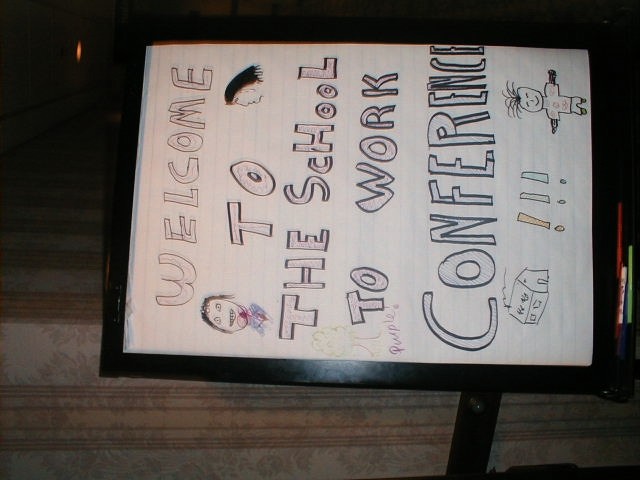 WELCOME
TO
THE SCHOOL
TO WORK
purple.
CONFERENCE
!!!